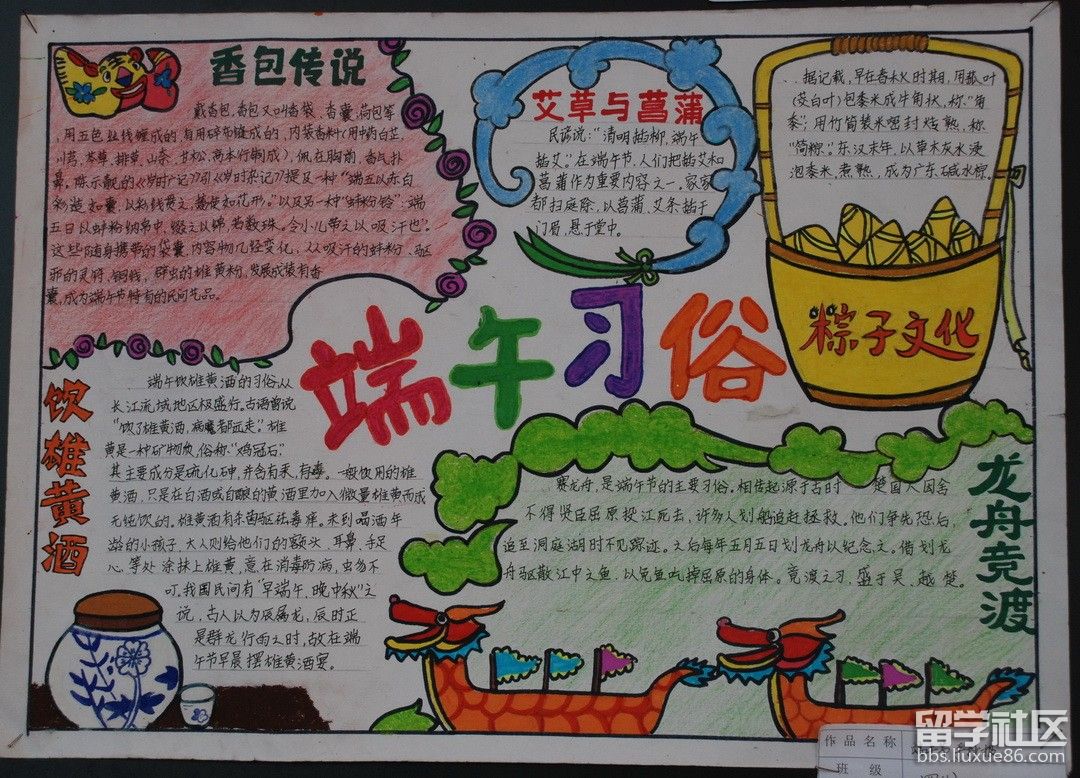 香包传说
戴香包,香包又叫香袋、香囊、荷包等,
用五色丝线缠成的,有用碎布缝成的,内装香料(用中药白芷、
川芎、芩草、排草、山柰、甘松、高本行制成),佩在胸前,香气扑
鼻。陈示靓的《岁时广记》引《岁时杂记》提及一种“端五以赤白
彩造如囊,以彩线贯之,搐使如花形。”以及另一种“蚌粉铃”:端
五日以蚌粉纳帛中,缀之以绵,若数珠。令小儿带之以吸汗也”。
这些随身携带的袋囊,内容物几经变化,从吸汗的蚌粉、驱
邪的灵符、铜钱,辟虫的雄黄粉,发展成装有香
囊,成为端午节特有的民间艺品。
艾草与菖蒲
民谚说:“清明插柳,端午
插艾”。在端午节,人们把插艾和
菖蒲作为重要内容之一。家家
都扫庭除,以菖蒲、艾条插于
门眉,悬于堂中。
据记载,早在春秋时期,用菰叶
(茭白叶)包黍米成牛角状,称“角
黍”;用竹筒装米密封烤熟,称
“筒粽”。东汉末年,以草木灰水浸
泡黍米,煮熟,成为广东碱水粽。
粽子文化
端午习俗
饮雄黄酒
端午饮雄黄酒的习俗,从
长江流域地区极盛行。古语曾说
“饮了雄黄酒,病魔都远走”。雄
黄是一种矿物质,俗称“鸡冠石”,
其主要成分是硫化砷,并含有汞,有毒。一般饮用的雄
黄酒,只是在白酒或自酿的黄酒里加入微量雄黄而成
无纯饮的。雄黄酒有杀菌驱祛毒痒。未到品酒年
龄的小孩子,大人则给他们的额头、耳鼻、手足
心等处涂抹上雄黄,意在消毒防病,虫豸不
叮。我国民间有“早端午、晚中秋”之
说,古人以为辰属龙,辰时正
是群龙行雨之时,故在端
午节早晨摆雄黄酒宴。
龙舟竞渡
赛龙舟,是端午节的主要习俗。相传起源于古时 楚国人因舍
不得贤臣屈原投江死去,许多人划船追赶拯救。他们争先恐后,
追至洞庭湖时不见踪迹。之后每年五月五日划龙舟以纪念之。借划龙
舟驱散江中之鱼,以免鱼吃掉屈原的身体。竞渡之习,盛于吴、越、楚。
作品名称
班级
留学社区
bbs.liuxue86.com